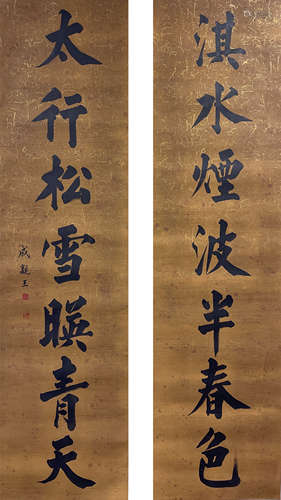 淇水煙波半春色
太行松雪暎青天
成親王